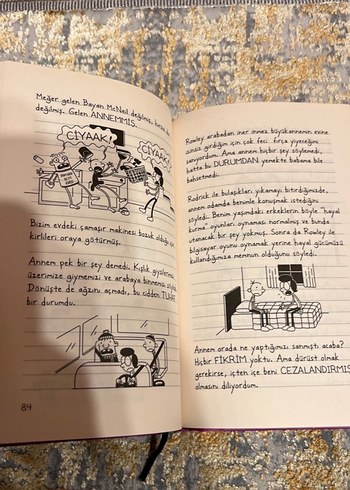 Meğer gelen Bayan McNeil değilmiş, hırsız da
değilmiş. Gelen ANNEMMİŞ.
CİYAAK!
CİYAAK!
Bizim evdeki çamaşır makinesi bozuk olduğu için
kirlileri oraya götürmüş.
Annem pek bir şey demedi. Kışlık giysilerimizi
üzerimize giymemizi ve arabaya binmemizi söyledi.
Dönüşte de ağzını açmadı, bu cidden TUHAF
bir durumdu.
84
Rowley arabadan iner inmez büyükannemin evine
izinsiz girdiğim için çok feci fırça yiyeceğimi
sanıyordum. Ama annem hiçbir şey söylemedi,
hatta bu DURUMDAN yemekte babama bile
bahsetmedi.
Rodrick ile bulaşıkları yıkamayı bitirdiğimizde,
annem odamda benimle konuşmak istediğini
söyledi. Benim yaşımdaki erkeklerin böyle "hayal
kurma" oyunları oynaması normalmiş ve bunda
utanacak bir şey yokmuş. Sonra da Rowley ile
bilgisayar oyunu oynamak yerine hayal gücümüzü
kullandığımıza memnun olduğunu söyledi.
Annem orada ne yaptığımızı sanmıştı acaba?
Hiçbir FİKRİM yoktu. Ama dürüst olmak
gerekirse, içten içe beni CEZALANDIRMIŞ
olmasını diliyordum.